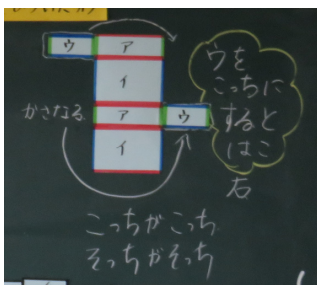 ウ
ア
イ
かさなる
ア
ウ
イ
ウを
こっちに
すると
はこ
右
こっちがこっち
そっちがそっち